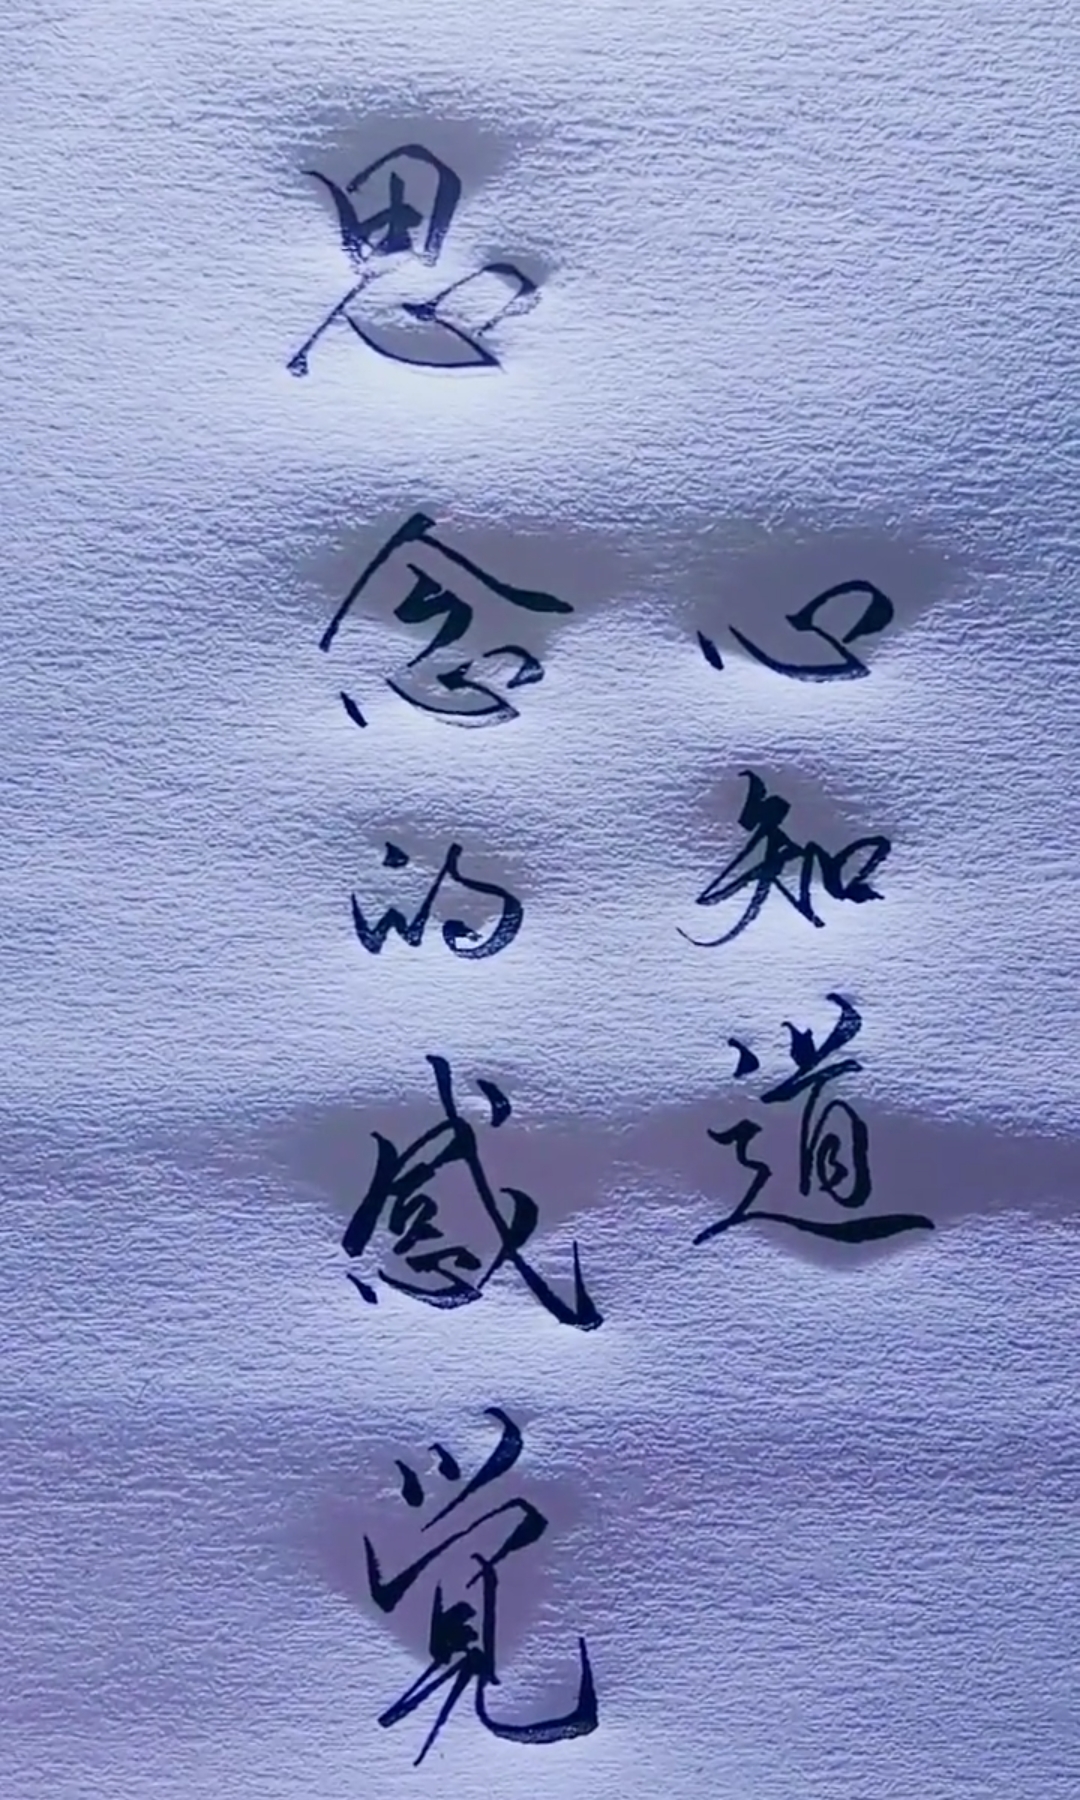 心知道
思念的感觉